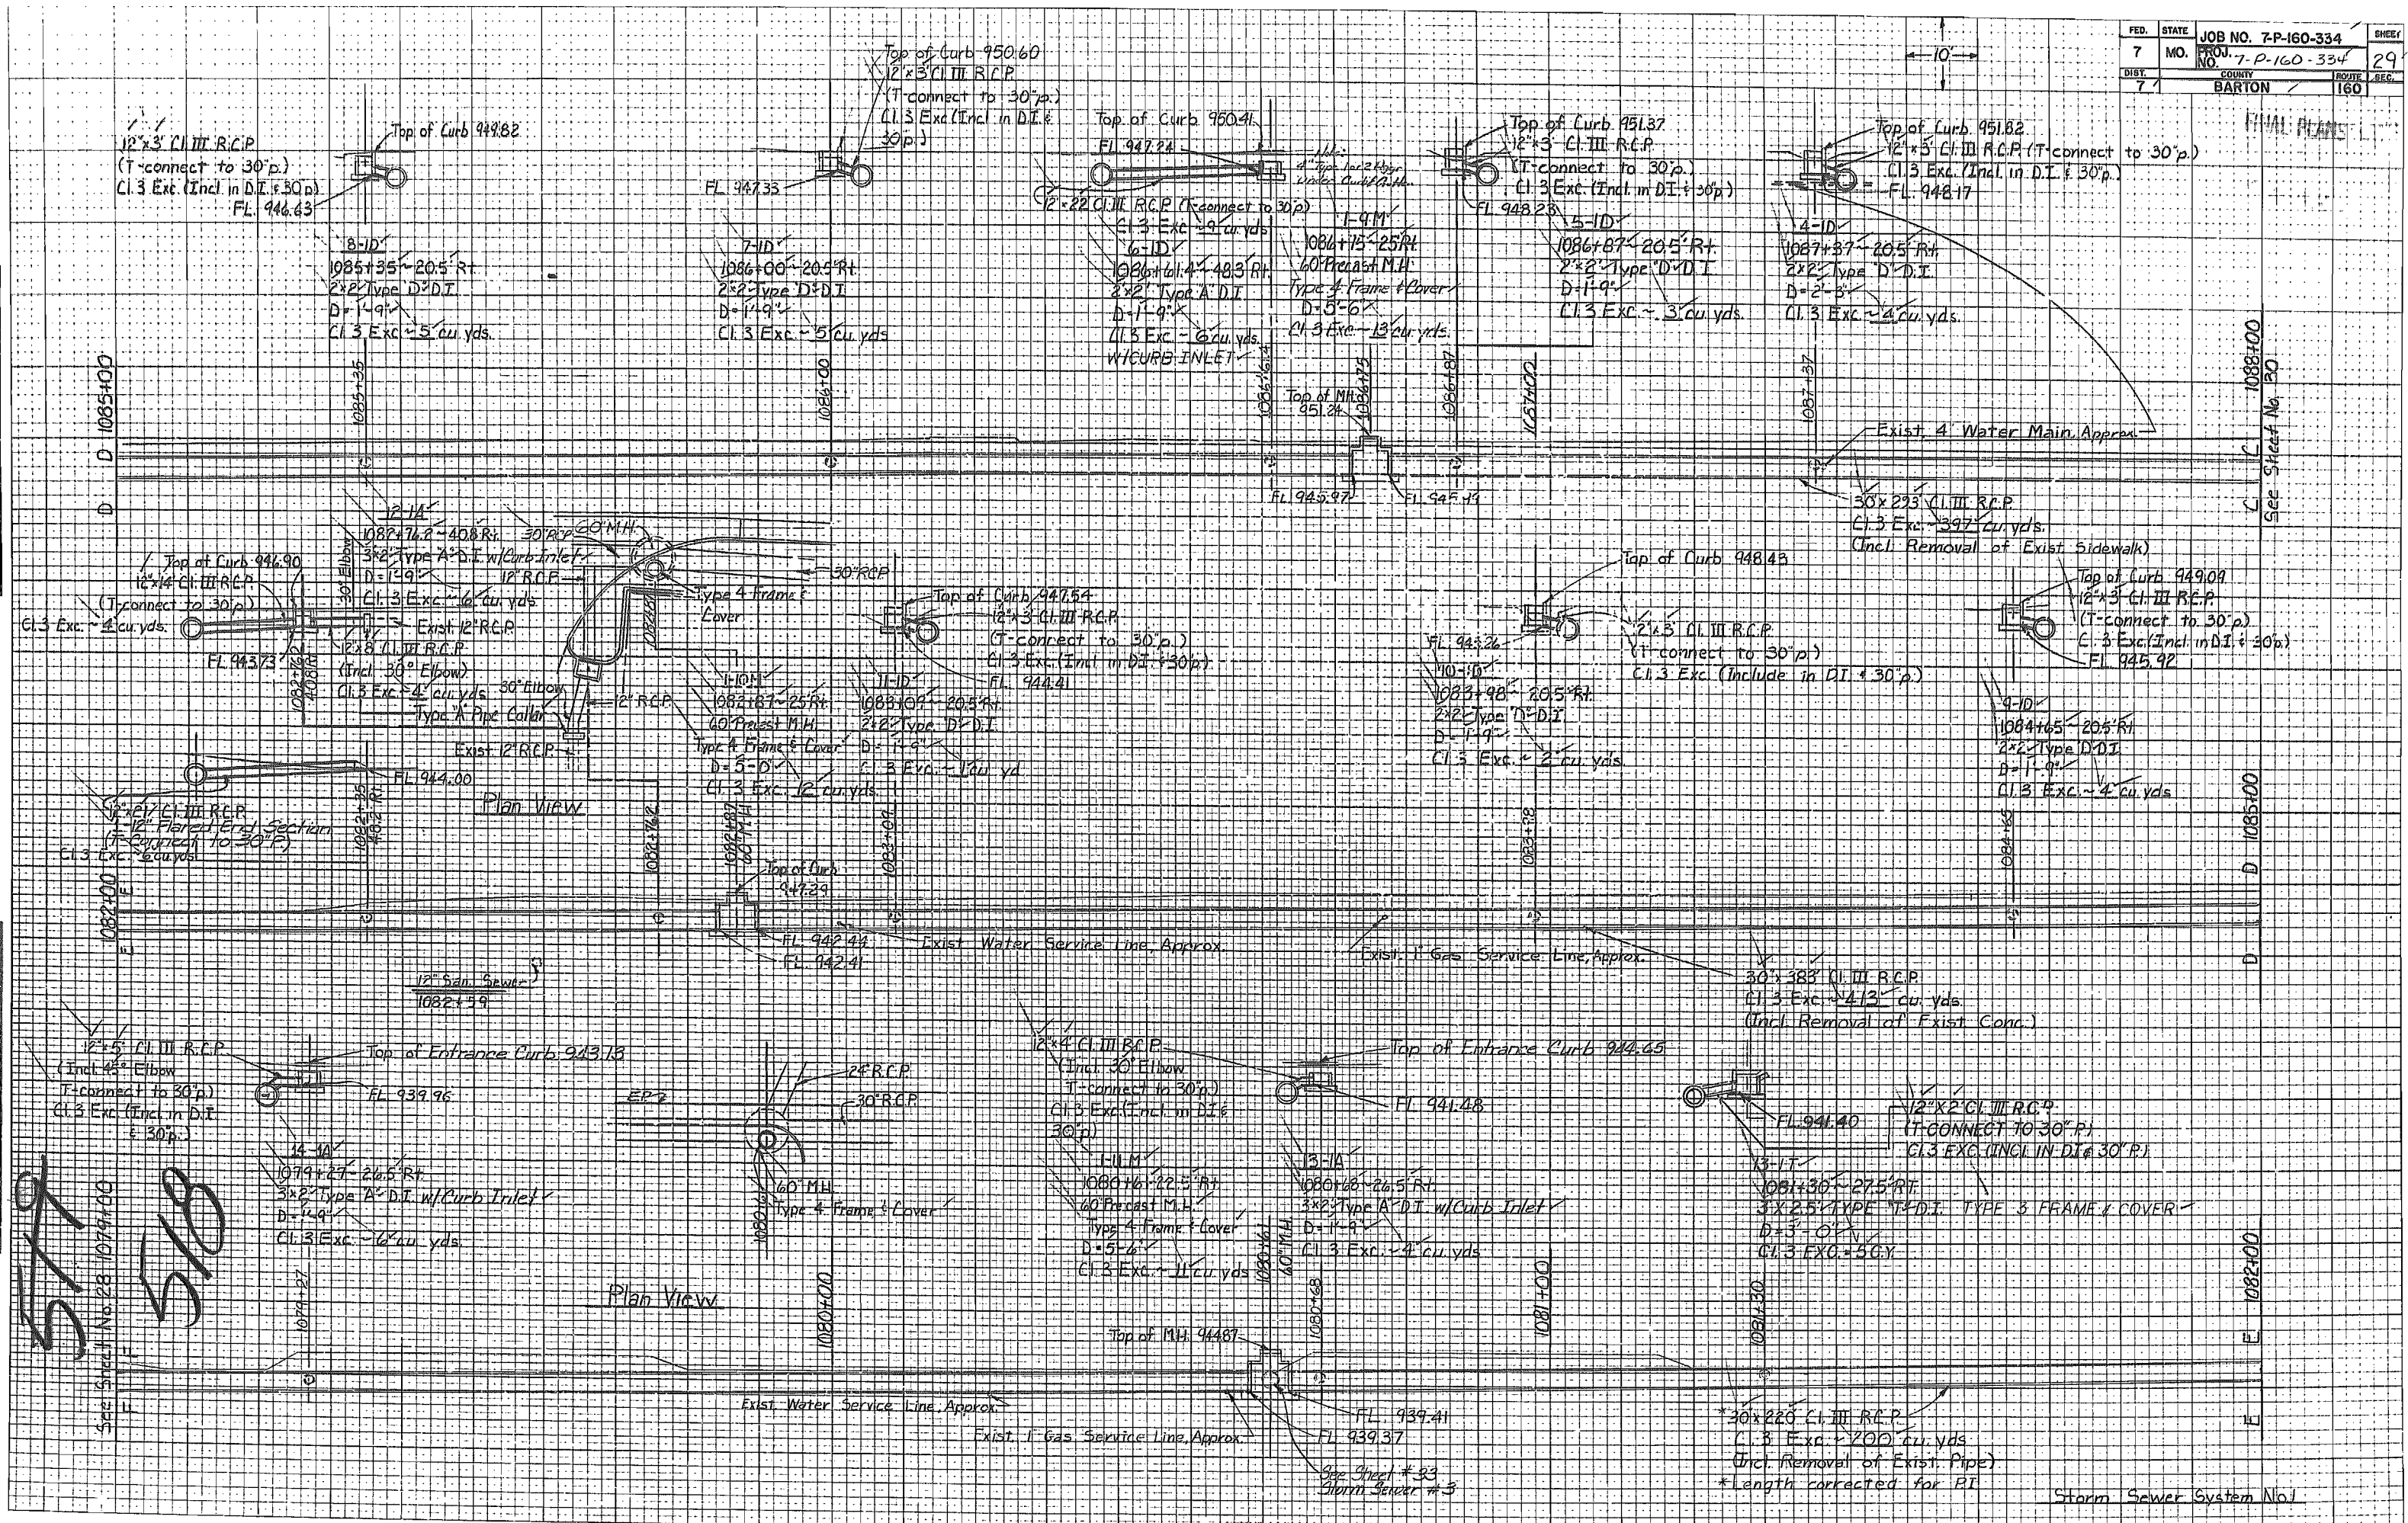 FED. STATE JOB NO. 7-P-160-334 SHEET
7 MO. PROJ. NO. 7-P-160-334 29
DIST. COUNTY ROUTE SEC.
7 BARTON 160
FINAL PLANS
10'
12"x3' Cl. III R.C.P.
(T-connect to 30"p.)
Cl. 3 Exc. (Incl. in D.I. & 30"p.)
FL. 946.63
Top of Curb 949.82
8-1D
1085+35~20.5' Rt.
2'x2' Type "D" D.I.
D=1'-9"
Cl. 3 Exc.~5 cu. yds.
Top of Curb 950.60
12"x3' Cl. III R.C.P.
(T-connect to 30"p.)
Cl. 3 Exc. (Incl. in D.I. &
30"p.)
FL. 947.33
7-1D
1086+00~20.5' Rt.
2'x2' Type "D" D.I.
D=1'-9"
Cl. 3 Exc.~5 cu. yds.
Top of Curb 950.41
FL. 947.24
12"x22' Cl. III R.C.P. (T-connect to 30"p)
Cl. 3 Exc.~9 cu. yds.
6-1D
1086+61.4~48.3' Rt.
2'x2' Type "A" D.I.
D=1'-9"
Cl. 3 Exc.~6 cu. yds.
W/CURB INLET
1-9M
1086+75~25' Rt.
60" Precast M.H.
Type 4 Frame & Cover
D=5'-6"
Cl. 3 Exc.~13 cu. yds.
Top of Curb 951.37
12"x3' Cl. III R.C.P.
(T-connect to 30"p.)
Cl. 3 Exc. (Incl. in D.I. & 30"p.)
FL. 948.23
5-1D
1086+87~20.5' Rt.
2'x2' Type "D" D.I.
D=1'-9"
Cl. 3 Exc.~3 cu. yds.
Top of Curb 951.82
12"x3' Cl. III R.C.P. (T-connect to 30"p.)
Cl. 3 Exc. (Incl. in D.I. & 30"p.)
FL. 948.17
4-1D
1087+37~20.5' Rt.
2'x2' Type "D" D.I.
D=2'-3"
Cl. 3 Exc.~4 cu. yds.
D 1085+00
1085+35
1086+00
1086+61.4
1086+75
1086+87
1087+00
1087+37
C 1088+00
See Sheet No. 30
Top of M.H.
951.24
Exist. 4" Water Main, Approx.
D
FL. 945.97
C
30"x293' Cl. III R.C.P.
Cl. 3 Exc.~397 cu. yds.
(Incl. Removal of Exist. Sidewalk)
12-1A
1082+76.2~40.8' Rt.
3'x2' Type "A" D.I. w/Curb Inlet
D=1'-9"
Cl. 3 Exc.~6 cu. yds.
Top of Curb 946.90
12"x14' Cl. III R.C.P.
(T-connect to 30"p.)
Cl. 3 Exc.~4 cu. yds.
FL. 943.73
30° Elbow
1082+76.2
40.8' Rt.
Exist. 12" R.C.P.
12"x8' Cl. III R.C.P.
(Incl. 30° Elbow)
Cl. 3 Exc.~4 cu. yds.
30" RCP
60" M.H.
12" R.C.P.
30" RCP
Type 4 Frame &
Cover
1082+87
30° Elbow
12" R.C.P.
Type "A" Pipe Collar
Exist. 12" R.C.P.
Plan View
1-10M
1082+87~25' Rt.
60" Precast M.H.
Type 4 Frame & Cover
D=5'-0"
Cl. 3 Exc. 12 cu. yds.
Top of Curb 947.54
12"x3' Cl. III R.C.P.
(T-connect to 30"p.)
Cl. 3 Exc. (Incl. in D.I. & 30"p)
FL. 944.41
11-1D
1083+09~20.5' Rt.
2'x2' Type "D" D.I.
D=1'-9"
Cl. 3 Exc.~1 cu. yd
Top of Curb 948.43
12"x3' Cl. III R.C.P.
(T-connect to 30"p.)
Cl. 3 Exc. (Include in D.I. & 30"p.)
FL. 945.26
10-1D
1083+98~20.5' Rt.
2'x2' Type "D" D.I.
D=1'-9"
Cl. 3 Exc.~2 cu. yds.
Top of Curb 949.09
12"x3' Cl. III R.C.P.
(T-connect to 30"p.)
Cl. 3 Exc. (Incl. in D.I. & 30"p.)
FL. 945.92
9-1D
1084+65~20.5' Rt.
2'x2' Type "D" D.I.
D=1'-9"
Cl. 3 Exc.~4 cu. yds
FL. 944.00
12"x21' Cl. III R.C.P.
1-12" Flared End Section
(T-Connect to 30"P.)
Cl. 3 Exc.~6 cu. yds.
1082+35
48.2' Rt.
1082+76.2
1082+87
60" M.H.
1083+09
1083+98
1084+65
D 1085+00
1082+00 E
Top of Curb
947.29
FL. 942.44
FL. 942.41
Exist. Water Service Line, Approx.
Exist. 1" Gas Service Line, Approx.
E
D
12" San. Sewer
1082+59
30"x383' Cl. III R.C.P.
Cl. 3 Exc.~413 cu. yds.
(Incl. Removal of Exist. Conc.)
12"x5' Cl. III R.C.P.
(Incl. 45° Elbow
T-connect to 30"p.)
Cl. 3 Exc. (Incl. in D.I.
& 30"p.)
Top of Entrance Curb 943.13
FL. 939.96
14-1A
1079+27~26.5' Rt.
3'x2' Type "A" D.I. w/Curb Inlet
D=1'-9"
Cl. 3 Exc.~6 cu. yds.
24" R.C.P.
30" R.C.P.
60" M.H.
Type 4 Frame & Cover
1080+61
Plan View
12"x4' Cl. III R.C.P.
(Incl. 30° Elbow
T-connect to 30"p.)
Cl. 3 Exc. (Incl. in D.I. &
30"p)
Top of Entrance Curb 944.65
FL. 941.48
1-11M
1080+61~22.5' Rt.
60" Precast M.H.
Type 4 Frame & Cover
D=5'-6"
Cl. 3 Exc.~11 cu. yds
13-1A
1080+68~26.5' Rt.
3'x2' Type "A" D.I. w/Curb Inlet
D=1'-9"
Cl. 3 Exc.~4 cu. yds
FL. 941.40
12"X2' CL. III R.C.P.
(T-CONNECT TO 30" P.)
CL. 3 EXC. (INCL. IN D.I. & 30" P.)
13-1T
1081+30~27.5' RT.
3'X2.5' TYPE "T" D.I. TYPE 3 FRAME & COVER
D=3'-0"
CL. 3 EXC.=5 C.Y.
519
518
See Sheet No. 28 1079+00
F
1079+27
1080+00
1080+61
60" M.H.
1080+68
1081+00
1081+30
E 1082+00
Top of M.H. 944.87
F
Exist. Water Service Line, Approx.
Exist. 1" Gas Service Line, Approx.
FL. 939.41
FL. 939.37
See Sheet #33
Storm Sewer #3
E
*30"x220' Cl. III R.C.P.
Cl. 3 Exc.~200 cu. yds
(Incl. Removal of Exist. Pipe)
*Length corrected for P.I.
Storm Sewer System No. 1